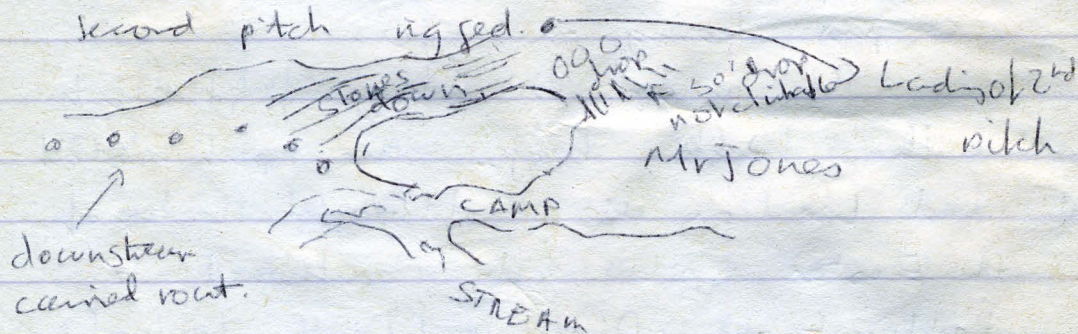 second pitch rigged.
stones
down
drop
50' drop
not climbable
Landing of 2nd
pitch
Mr Jones
CAMP
downstream
cairned rout.
STREAM